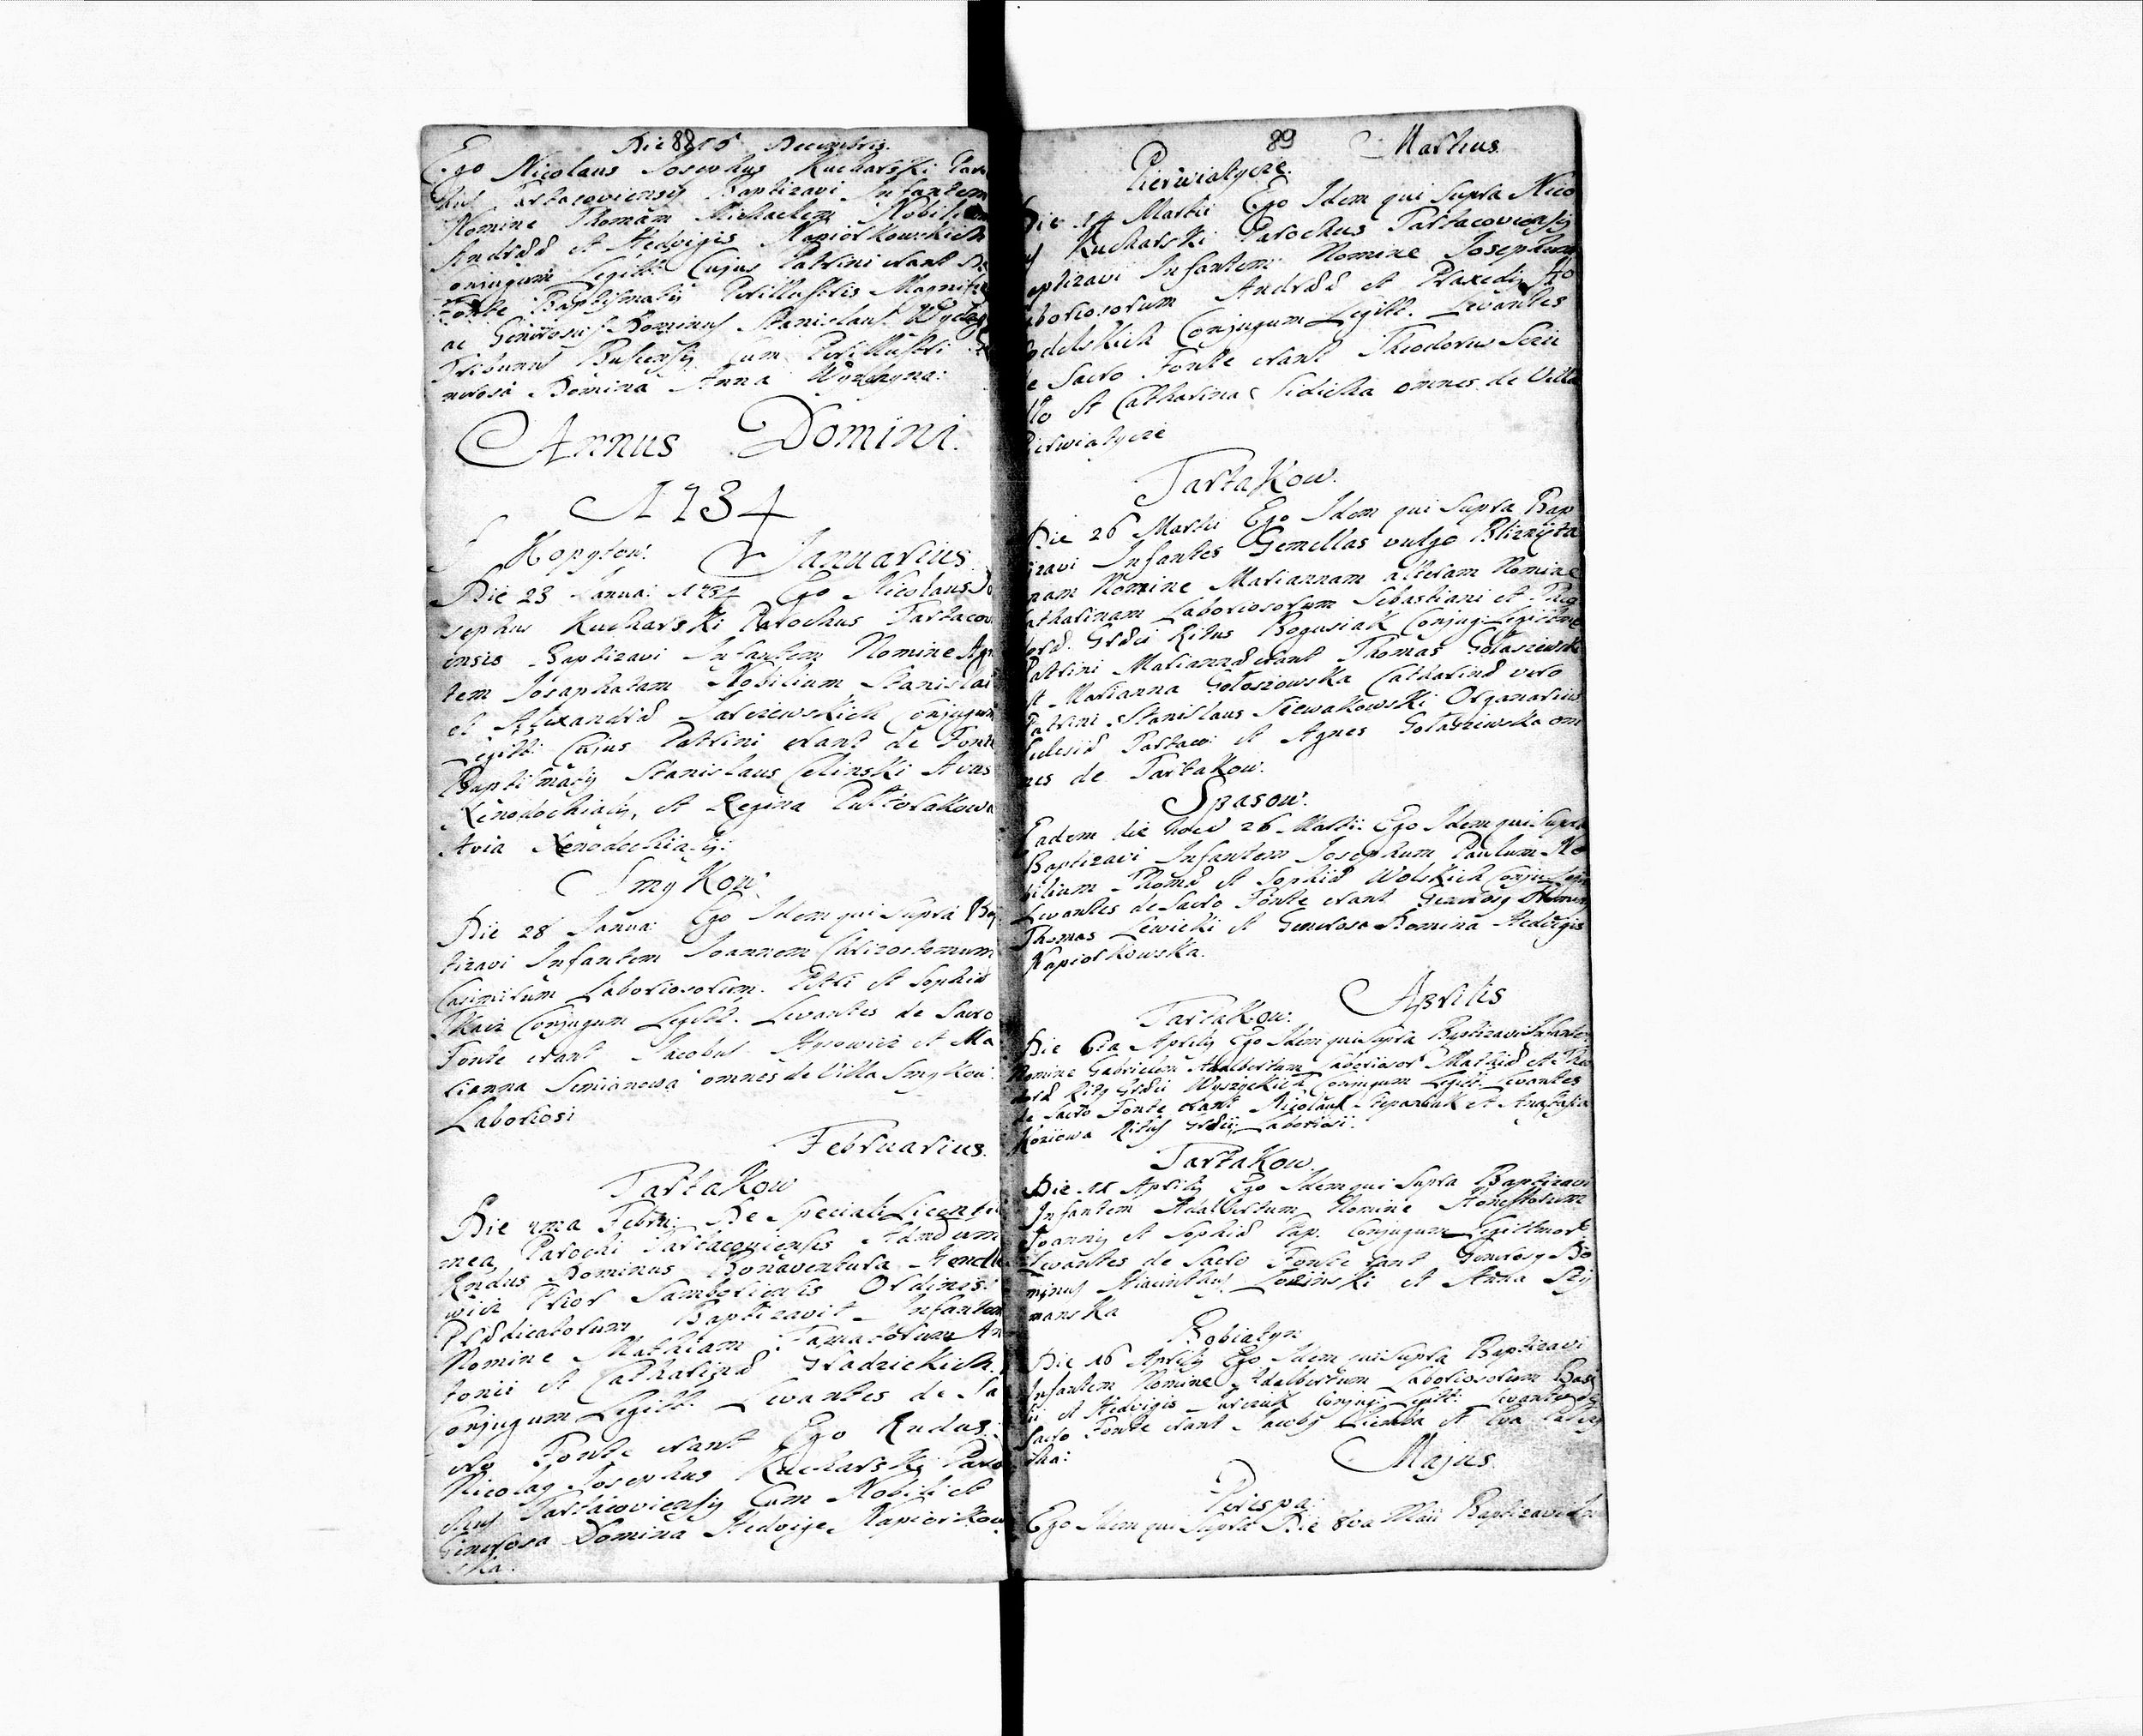 88
Die 15 Decembris.
Ego Nicolaus Josephus Kucharski Paro
chus Tartacoviensis Baptizavi Infantem
Nomine Thomam Michaelem Nobilium
Andreæ et Hedvigis Napiorkowskich
Conjugum Legitt: Cujus Patrini erant de
Fonte Baptismatis Perillustris Magnificus
ac Generosus Dominus Stanislaus
Tribunus Buscensis cum Perillustri Ge
nerosa Domina Anna
Annus Domini.
1734
Kopytow. Januarius
Die 23 Janua: 1734 Ego Nicolaus Jo
sephus Kucharski Parochus Tartacovi
ensis Baptizavi Infantem Nomine Agne
tem Josaphatam Nobilium Stanislai
et Alexandræ Jarczewskich Conjugum
Legitt: Cujus Patrini erant de Fonte
Baptismatis Stanislaus Celinski Avus
Xenodochialis, et Regina Pułtorakowa
Avia Xenodochialis.
Smykow.
Die 28 Janua: Ego Idem qui Supra Bap
tizavi Infantem Joannem Chrizostomum
Casimirum Laboriosorum Petri et Sophiæ
Tkacz Conjugum Legitt. Levantes de Sacro
Fonte erant Jacobus et Ma
rianna Semianowa omnes de Villa Smykow
Laboriosi
Februarius.
Tartakow
Die 1ma Febru: De Speciali Licentia
mea Parochi Tartacoviensis Admodum
Rndus Dominus Bonaventura
wicz Prior Samboriensis Ordinis
Prædicatorum Baptizavit Infantem
Nomine Mathiam Famatorum An
tonii et Catharinæ Gradzickich
Conjugum Legitt. Levantes de Sa
cro Fonte erant Ego Rndus
Nicolaus Josephus Kucharski Paro
chus Tartacoviensis Cum Nobili et
Generosa Domina Hedvige Napiorkow
ska.
89
Martius
Pierwiatycze.
Die 14 Martii Ego Idem qui Supra Nico
laus Kucharski Parochus Tartacoviensis
Baptizavi Infantem Nomine Josephum
Laboriosorum Andreæ et Praxedis Ho
rodelskich Conjugum Legitt. Levantes
de Sacro Fonte erant Theodorus
et Catharina Sidicha omnes de Villa
Pierwiatycze
Tartakow.
Die 26 Martii Ego Idem qui Supra Bap
tizavi Infantes Gemellas vulgo Bliznięta
unam Nomine Mariannam alteram Nomine
Catharinam Laboriosorum Sebastiani et Theo
doræ Græci Ritus Bogusiak Conjug: Legittime
Patrini Mariannæ erant Thomas Gołaszewski
et Marianna Gołaszowska Catharinæ vero
Patrini Stanislaus Siewakowski Organarius
Ecclesiæ Tartaco: et Agnes Gołaszewska om
nes de Tartakow.
Spasow.
Eadem die hoc est 26 Martii Ego Idem qui Supra
Baptizavi Infantem Josephum Paulum No
bilium Thomæ et Sophiæ Wolskich Conju: Legitt
Levantes de Sacro Fonte erant Generosus Dominus
Thomas Lewicki et Generosa Domina Hedvigis
Napiorkowska.
Aprilis
Tartakow.
Die 6ta Aprilis Ego Idem qui Supra Baptizavi Infantem
Nomine Gabrielem Adalbertum Laboriosor: Mathiæ et Theo
doræ Ritus Græci Wyszyckich Conjugum Legitt. Levantes
de Sacro Fonte erant Nicolaus Stepaniuk et Anastasia
Koziowa Ritus Græci Laboriosi.
Tartakow
Die 11 Aprilis Ego Idem qui Supra Baptizavi
Infantem Adalbertum Nomine Honestorum
Joannis et Sophiæ Pap. Conjugum Legittimor:
Levantes de Sacro Fonte erant Generosus Do
minus Hiacinthus Lozinski et Anna Szy
manska
Bobiatyn
Die 16 Aprilis Ego Idem qui Supra Baptizavi
Infantem Nomine Adalbertum Laboriosorum Basi
lii et Hedvigis Jurczuk Conjug: Legitt: Levantes de
Sacro Fonte erant Jacobus et Eva
cha:
Majus
Perespa.
Ego Idem qui Supra Die 8va Maii Baptizavi